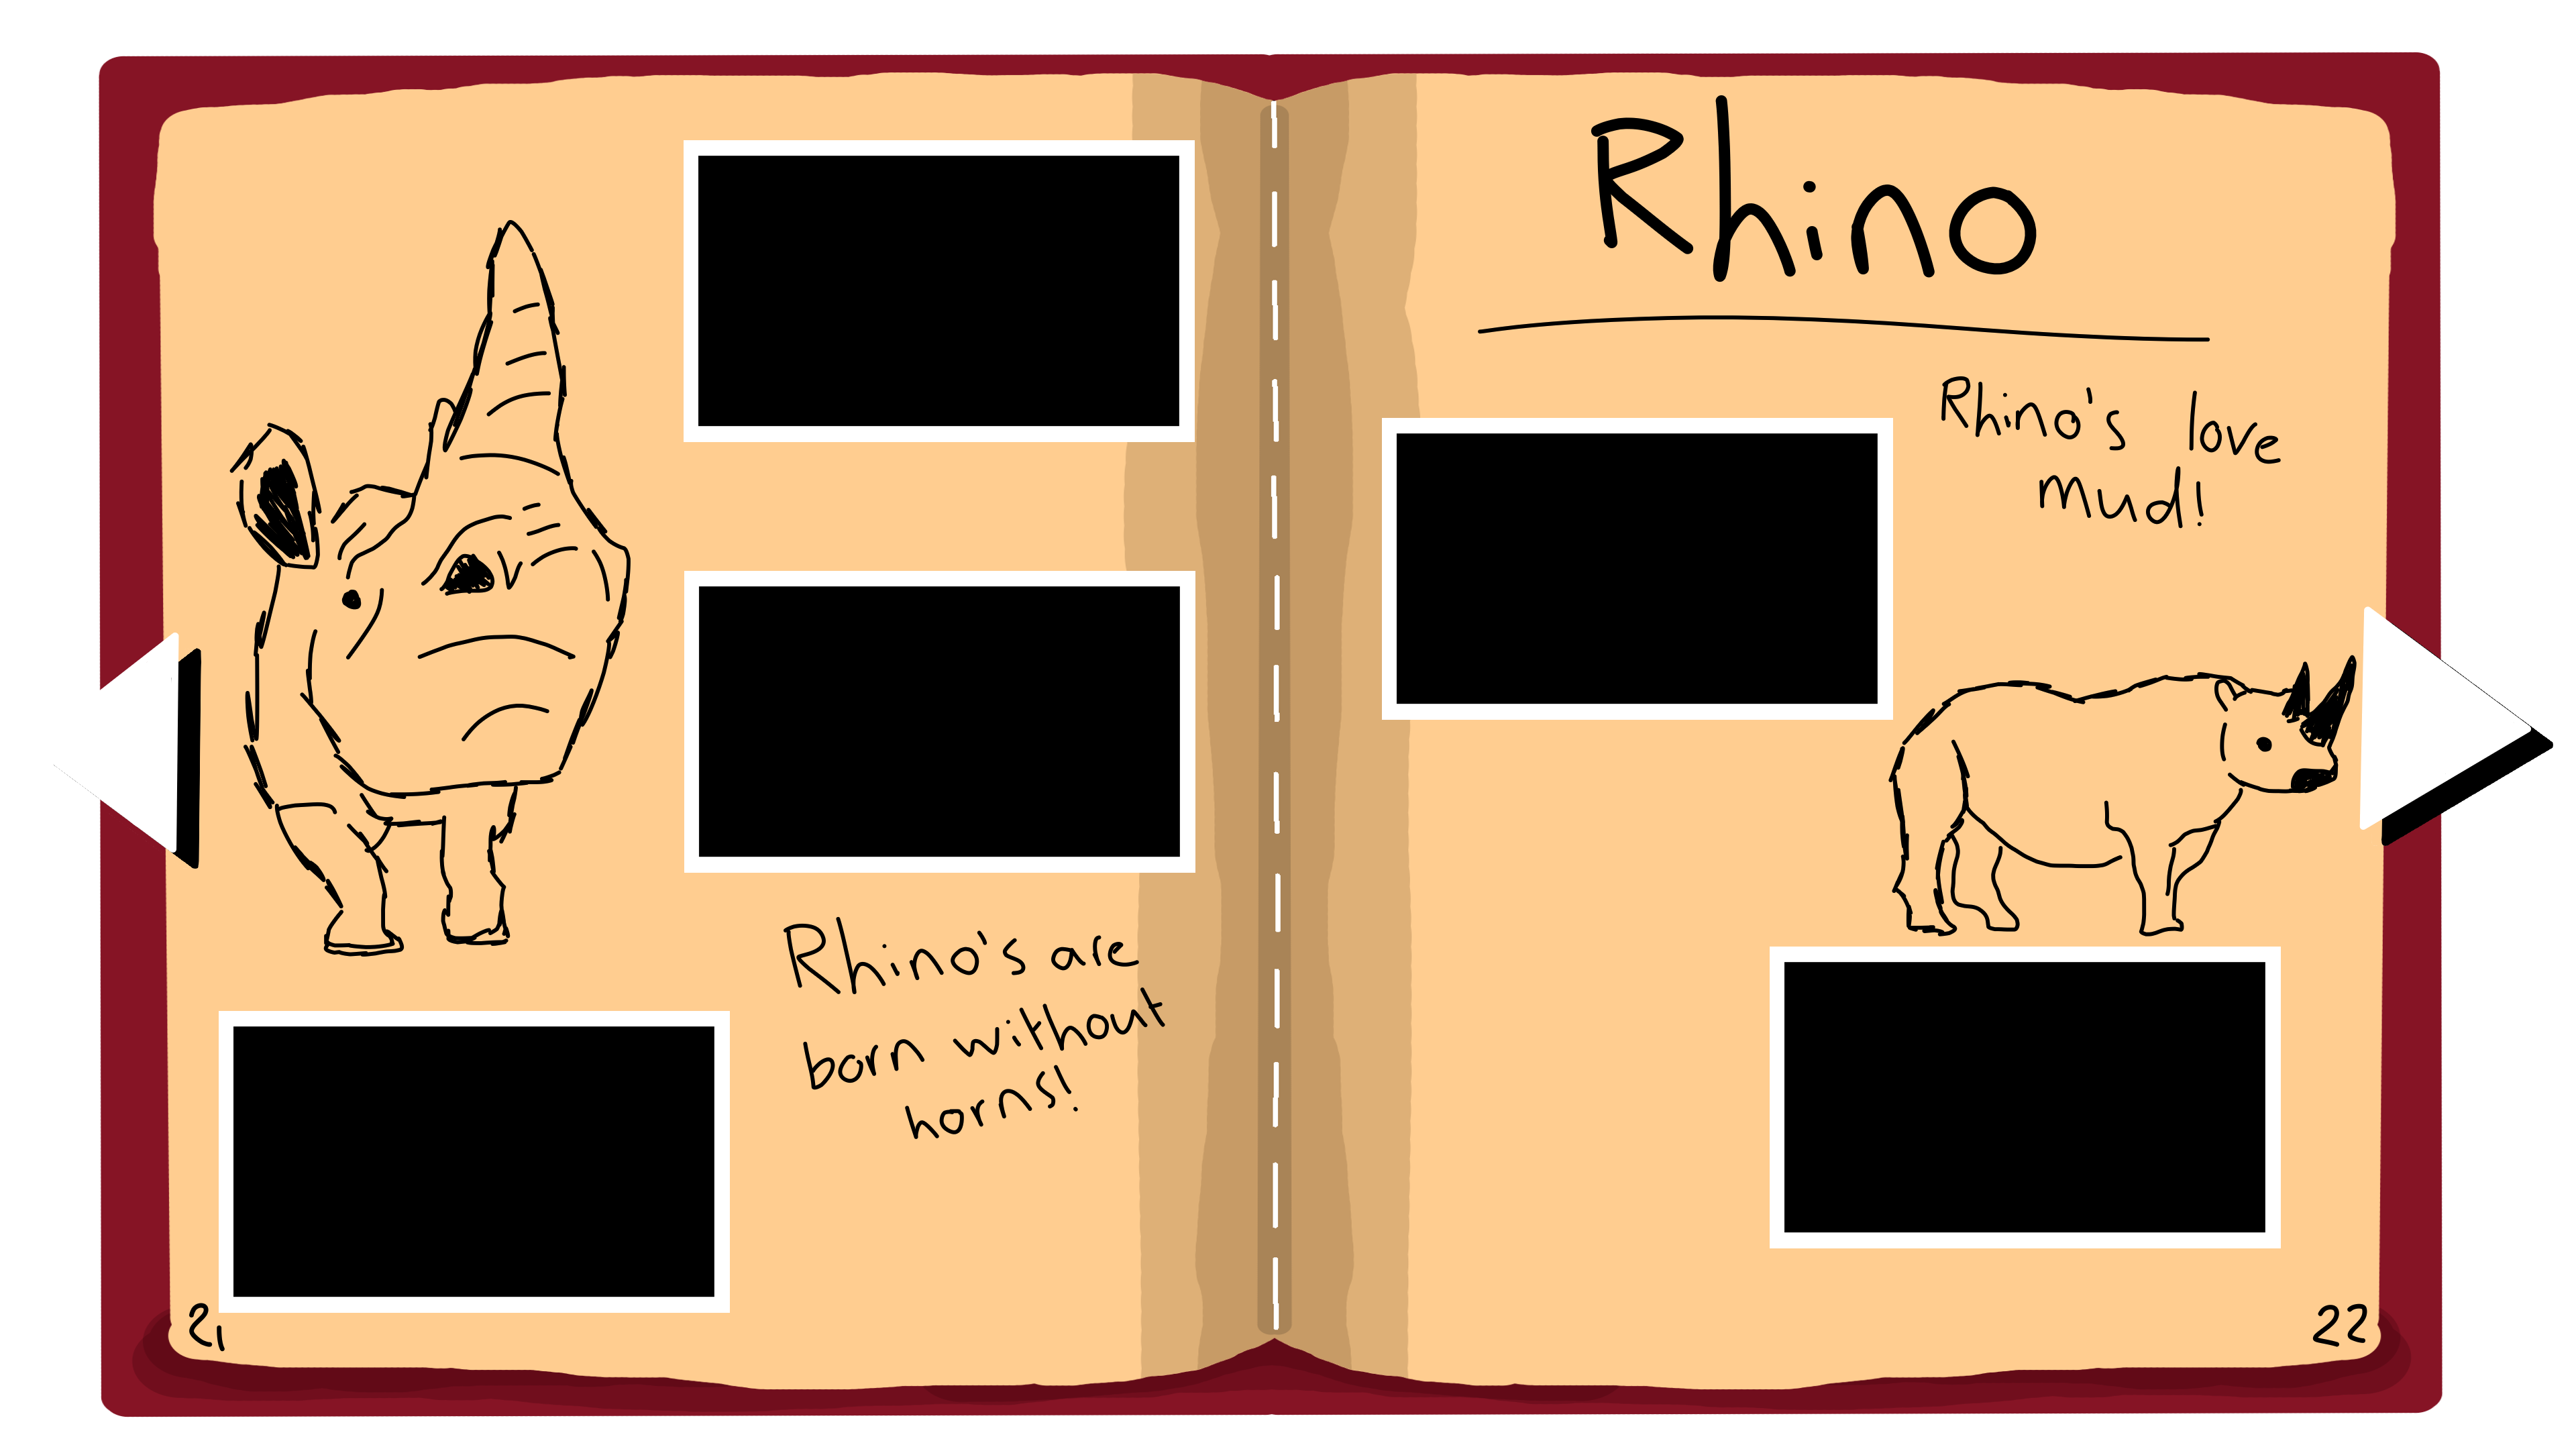 Rhino's are
born without
horns!
21
Rhino
Rhino's love
mud!
22